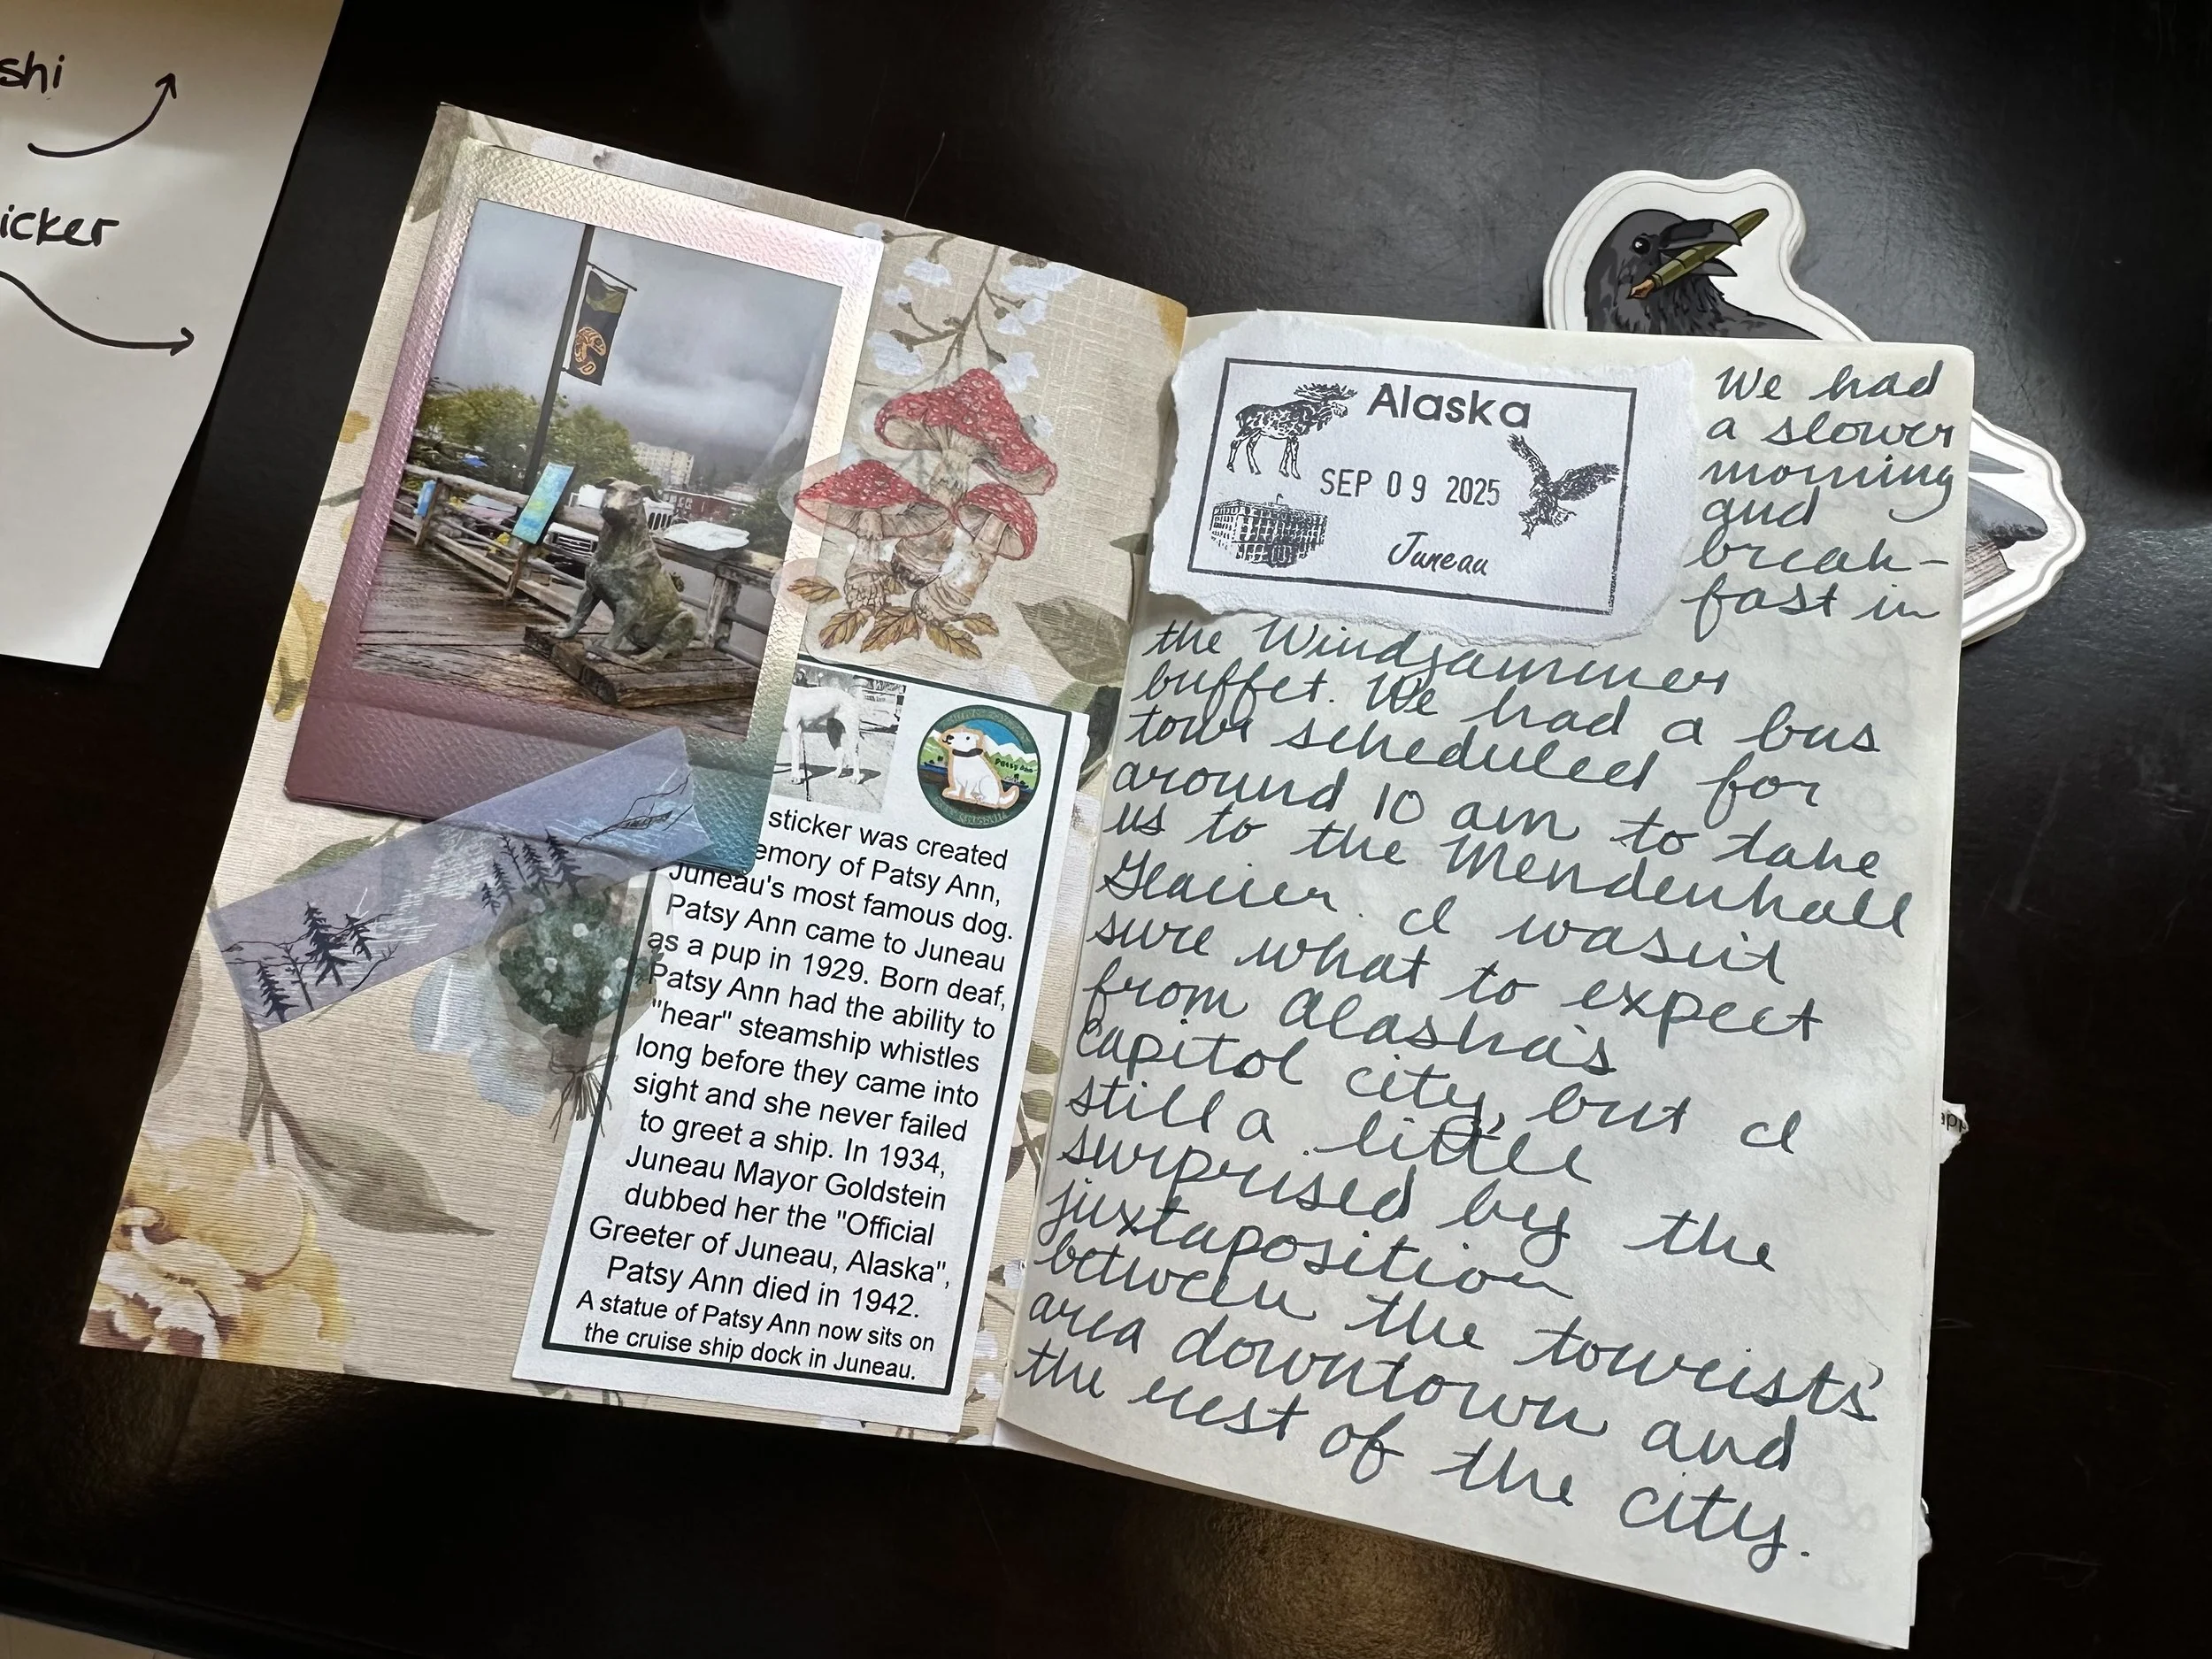 shi
icker
Patsy Ann
sticker was created
emory of Patsy Ann,
Juneau's most famous dog.
Patsy Ann came to Juneau
as a pup in 1929. Born deaf,
Patsy Ann had the ability to
"hear" steamship whistles
long before they came into
sight and she never failed
to greet a ship. In 1934,
Juneau Mayor Goldstein
dubbed her the "Official
Greeter of Juneau, Alaska",
Patsy Ann died in 1942.
A statue of Patsy Ann now sits on
the cruise ship dock in Juneau.
Alaska
SEP 09 2025
Juneau
We had
a slower
morning
and
break-
fast in
the Windjammer
buffet. We had a bus
tour scheduled for
around 10 am to take
us to the Mendenhall
Glacier. I wasn't
sure what to expect
from Alaska's
capitol city, but I
still a little
surprised by the
juxtaposition
between the tourists'
area downtown and
the rest of the city.